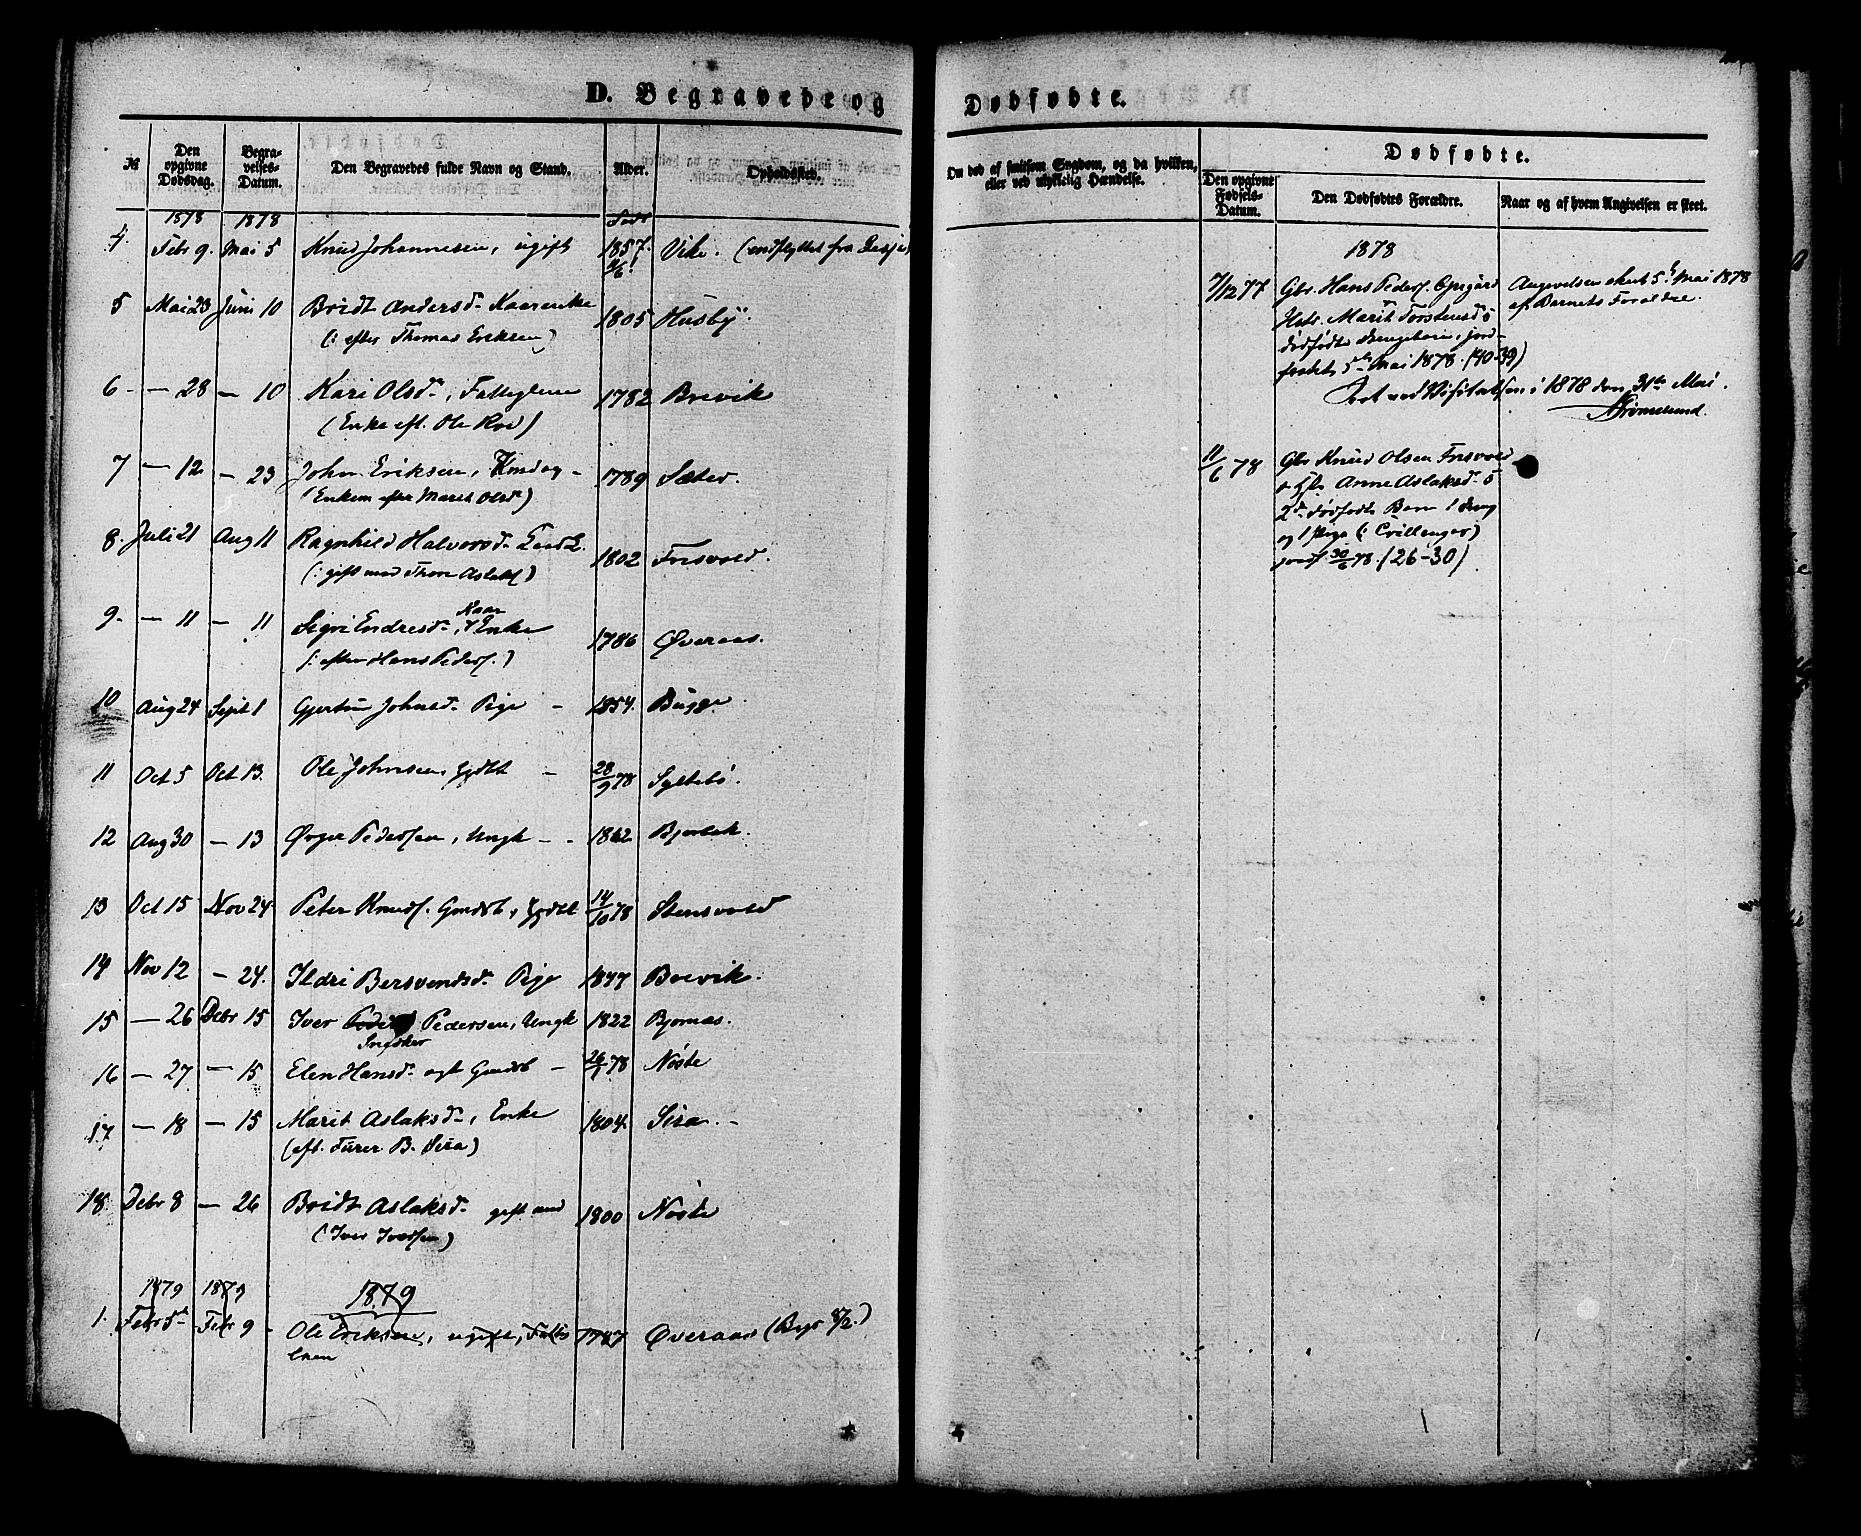 D. Begravede og Dødfødte.
№
Den opgivne Dødsdag.
Begravelses-Datum.
Den Begravedes fulde Navn og Stand.
Alder.
Opholdssted.
Om død af smitsom Sygdom, og da hvilken, eller ved ulykkelig Hændelse.
Dødfødte.
Den opgivne Fødsels-Datum.
Den Dødfødtes Forældre.
Naar og af hvem Angivelsen er skeet.
1878 1878
4. Febr 9. Mai 5 Knud Johannesen, ugift 1857. Vike. (indflyttet fra Lesje)
11/6
5 Mai 23 Juni 10 Bridt Andersd. Kaarenke 1805 Husby
(: efter Thomas Eriksen)
6 — 28 — 10 Kari Olsd., 1782 Brevik
(Enke eft. Ole Roe)
7 — 12 — 23 John Eriksen, 1789 Sæter.
(Enkem efter Marit Olsd)
8. Juli 21 Aug 11 Ragnhild Halvorsd. 1802 Frisvold.
(: gift med Thore Aslaks)
9. — 11 — 11 Sigri Endresd., Kaar Enke 1786 Øveraas.
(: efter Hans Peders.)
10 Aug 24 Sept 1 Gjertru Johnsd. Pige – 1854. Bugge
11 Oct 5 Oct 13. Ole Johnsen, – 28/9 78 Syltebø.
12 Aug 30 — 13 Pedersen, Ungk – 1862
13 Oct 15 Nov 24 Peter Knuds. Gmdsb, 14/10 78 Stensvold
14 Nov 12 — 24. Ildri Bersvendsd. Pige 1877 Brevik.
15 — 26 Debr 15 Iver Pedersen, Ungk 1822 Bjornas.
16 — 27 — 15 Elen Hansd. Gmdsb – 78 Nøste
17 — 18 — 15 Marit Aslaksd., Enke 1804. Sira. –
(eft. B. Sira)
18. Debr 8 — 26 Bridt Aslaksd. gift med 1800 Nøste
(Iver Iversen)
1879 1879 1879
1. Febr 5 Febr 9 Ole Eriksen, ugift, 1787 Øveraas
1878
7/12 77 Gbr. Hans Peders. Opigård
Marit Torstensd s
dødfødte drengebarn, jord-
fæstet 5te Mai 1878. (40-39)
Angivelsen skeet 5te Mai 1878
af Barnets Forældre.
Seet ved Visitatsen i 1878 den 31te Mai.
11/6 78 Gbr Knud Olsen Frisvold
Anne Aslaksd. s
2de dødfødte Børn 1 dreng
og 1 pige (: Tvillinger)
30/6 78. (26-30)